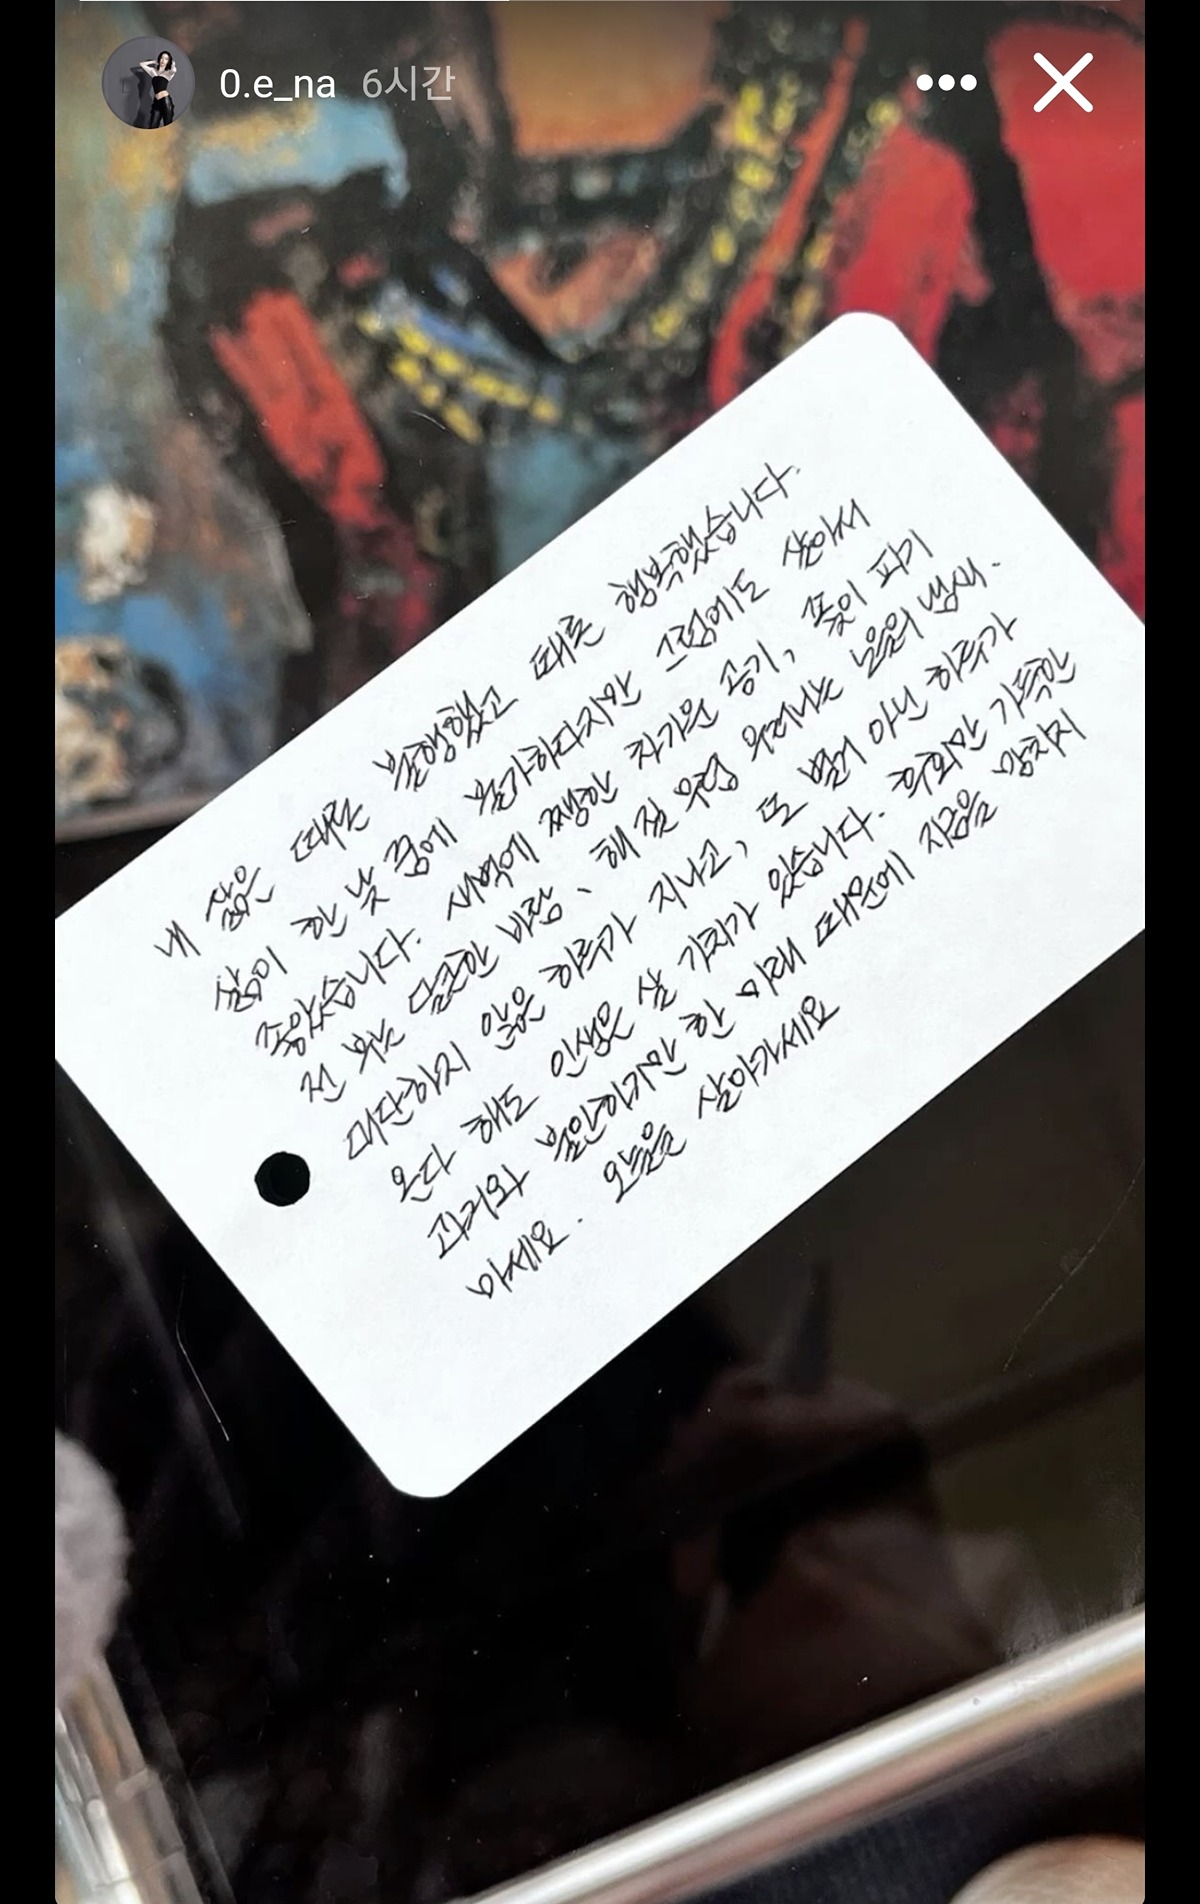 0.e_na 6시간
내 젊은 때론 불행했고 때론 행복했습니다.
삶이 한 낮 꿈에 불가하다지만 그럼에도 살아서
좋았습니다. 새벽에 쨍한 차가운 공기, 꽃이 피기
전 부는 달큰한 바람, 해 질 무렵 우러나는 노을의 냄새.
대단하지 않은 하루가 지나고, 또 별거 아닌 하루가
온다 해도 인생은 살 가치가 있습니다. 후회만 가득한
과거와 불안하기만 한 미래 때문에 지금을 망치지
마세요. 오늘을 살아가세요